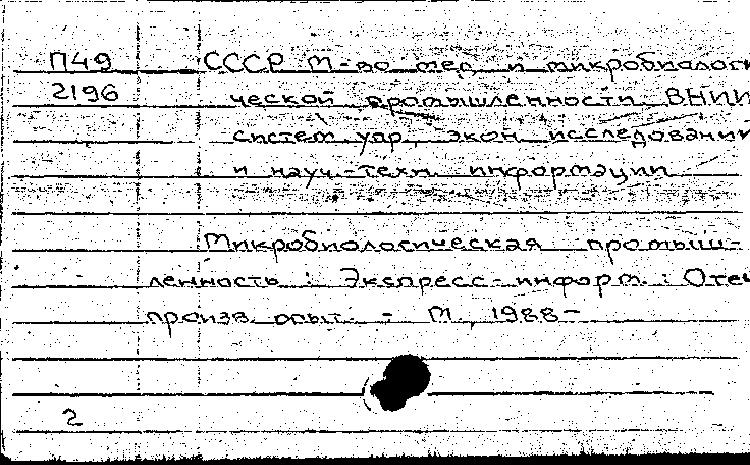 П49 СССР М-во мед. и микробиологи
2196 ческой промышленности. ВНИИ
систем упр., экон. исследований
и науч.-техн. информации.
Микробиологическая промыш-
ленность : Экспресс-информ. : Отеч.
произв. опыт. - М., 1988-
2